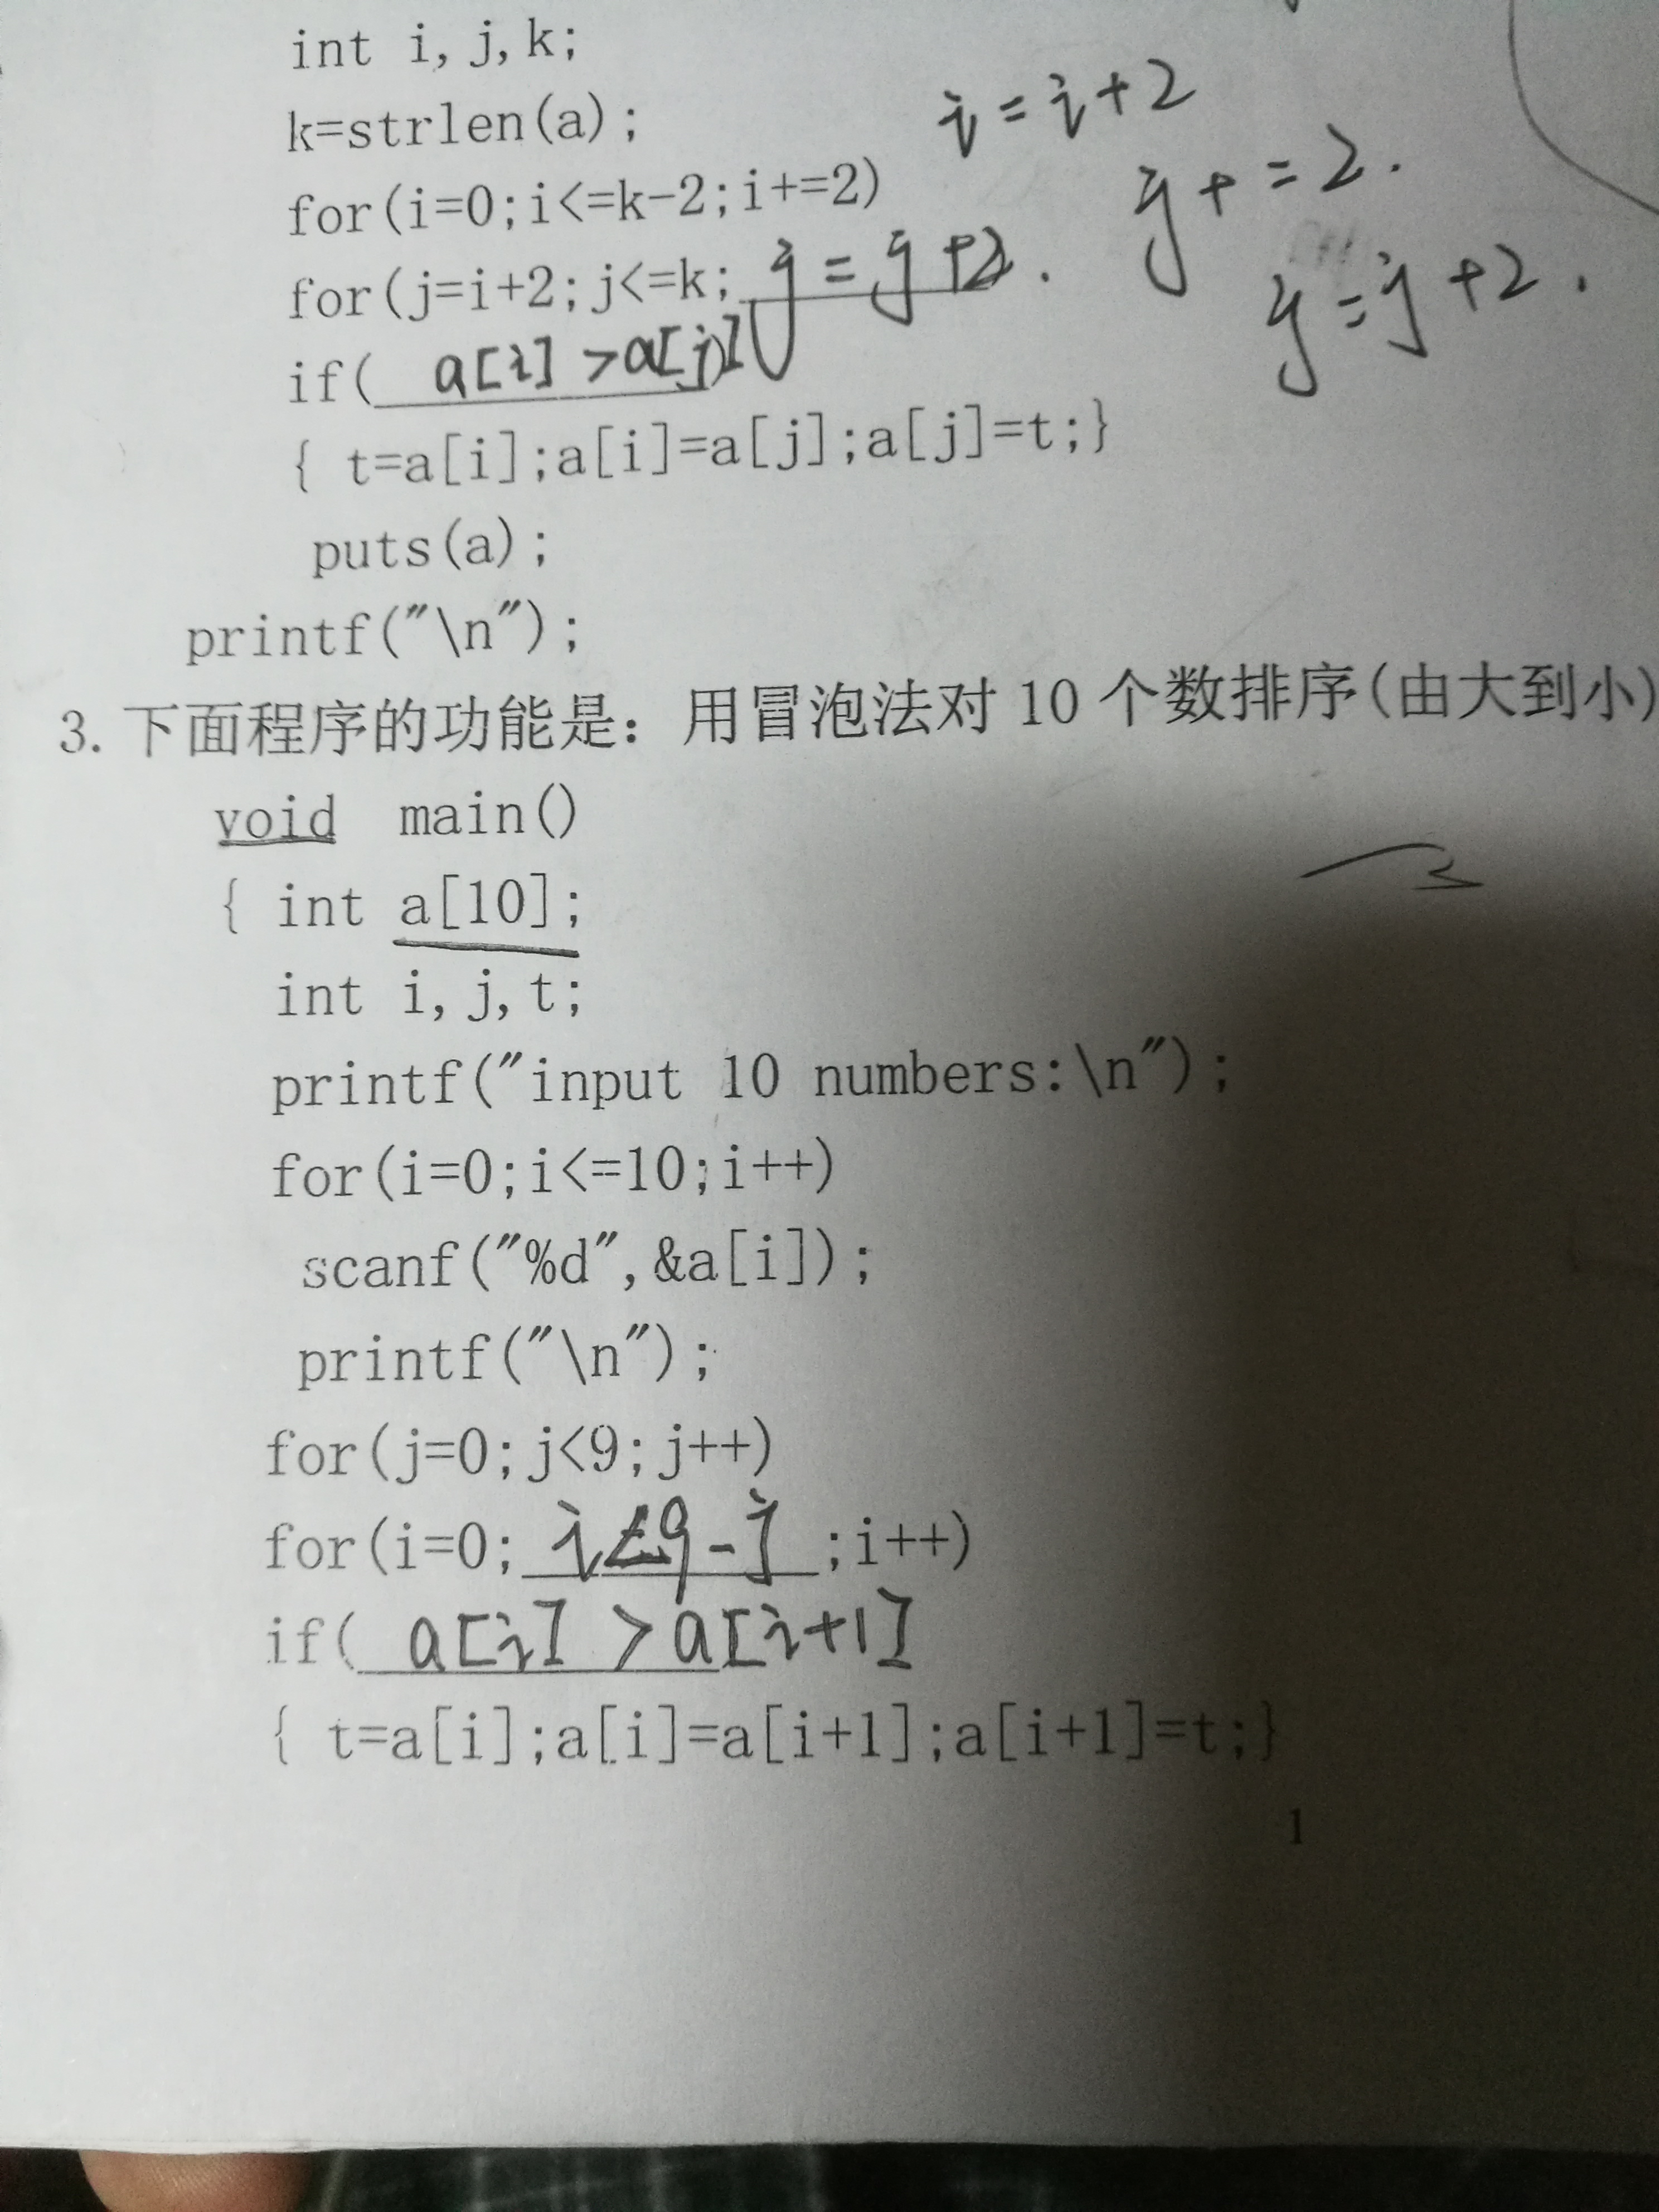 int i,j,k;
k=strlen(a);
i=i+2
for(i=0;i<=k-2;i+=2)
j+=2.
for(j=i+2;j<=k; j=j+2.
j=j+2.
if( a[i]>a[j])
{ t=a[i];a[i]=a[j];a[j]=t;}
puts(a);
printf("\n");
3. 下面程序的功能是：用冒泡法对 10 个数排序(由大到小)
void main()
{ int a[10];
int i,j,t;
printf("input 10 numbers:\n");
for(i=0;i<=10;i++)
scanf("%d",&a[i]);
printf("\n");
for(j=0;j<9;j++)
for(i=0; i<9-j ;i++)
if( a[i]>a[i+1]
{ t=a[i];a[i]=a[i+1];a[i+1]=t;}
1